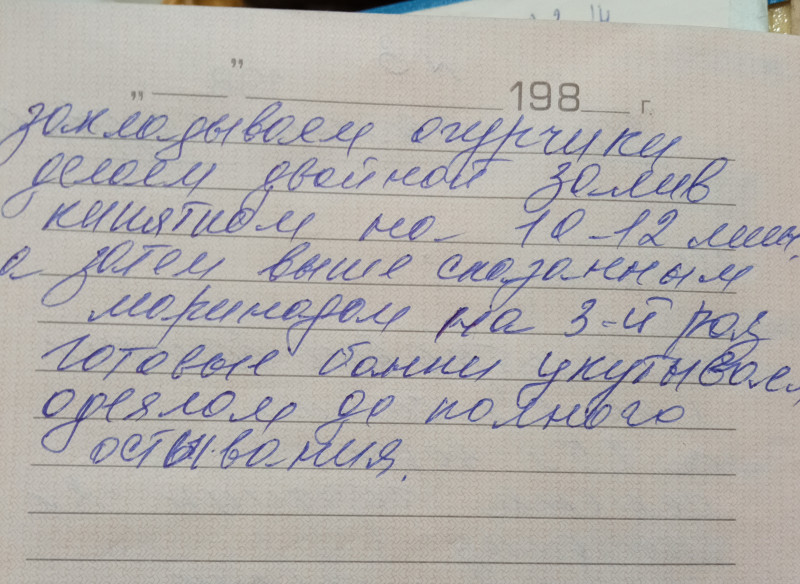 „ ” 198 г.
закладываем огурчики
делаем двойной залив
кипятком на 10-12 мин.
а затем выше сказанным
маринадом на 3-й раз
готовые банки укутываем
одеялом до полного
остывания.